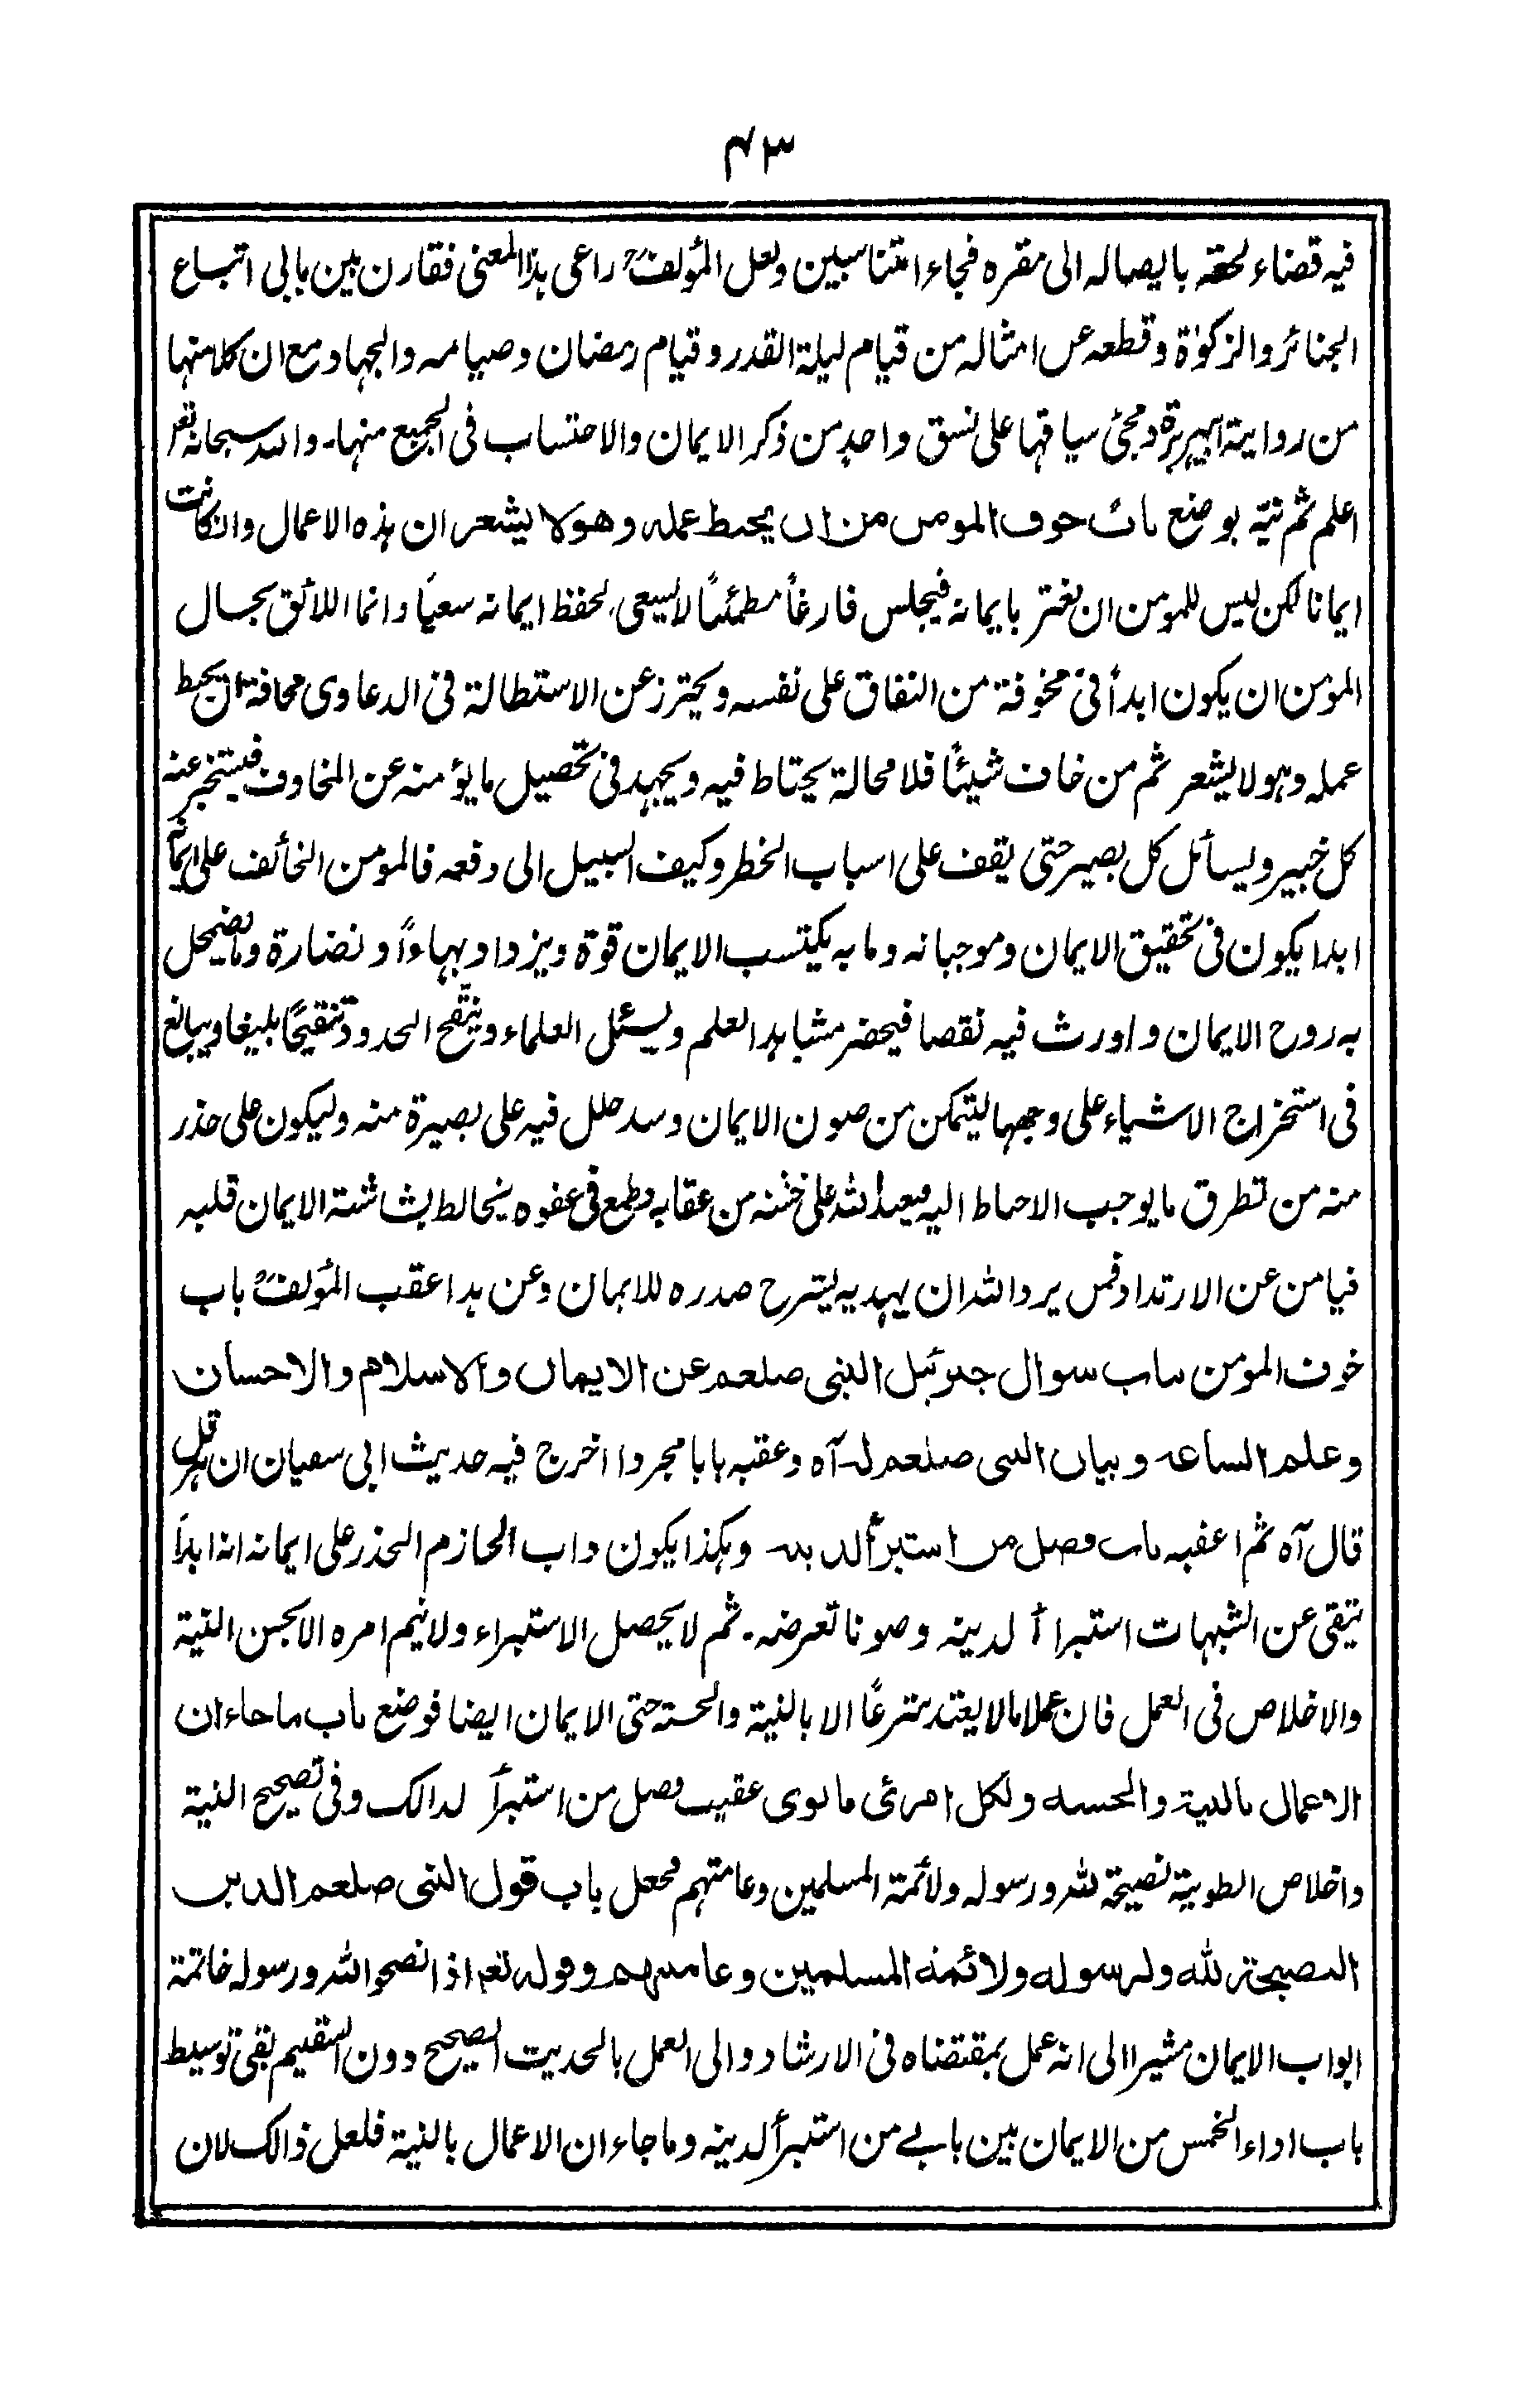 ۴۳
فيه قضاء لحقه بايصاله الى مقره فجاءا متناسبين ولعل المؤلفؒ راعى هذا المعنى فقارن بين بابى اتباع
الجنائز والزكوٰة وقطعه عن امثاله من قيام ليلة القدر وقيام رمضان وصيامه والجهاد مع ان كلا منها
من رواية ابى هريرة ومجئ سياقها على نسق واحد من ذكر الايمان والاحتساب فى الجميع منها۔ والله سبحانه تعه
اعلم ثم نبه بوضع باب خوف المومن من ان يحبط عمله وهو لا يشعر ان هذه الاعمال وان كانت
ايمانا لكن ليس للمومن ان يغتر بايمانه فيجلس فارغاً مطمئنًا لا يسعى لحفظ ايمانه سعيًا وانما اللائق بحال
المؤمن ان يكون ابداً فى مخوفة من النفاق على نفسه ويحترز عن الاستطالة فى الدعاوى مخافة ان يحبط
عمله وهو لا يشعر ثم من خاف شيئًا فلا محالة يحتاط فيه ويجهد فى تحصيل ما يؤمنه عن المخاوف فيستخبر عنه
كل خبير ويسأل كل بصير حتى يقف على اسباب الخطر وكيف السبيل الى دفعه فالمومن الخائف على ايمانه
ابدا يكون فى تحقيق الايمان وموجباته وما به يكتسب الايمان قوة ويزداد بهاءاً ونضارة وما يضمحل
به روح الايمان واورث فيه نقصا فيحضر مشاهد العلم ويسئل العلماء وينقّح الحدود تنقيحًا بليغا ويبالغ
فى استخراج الاشياء على وجهها ليتمكن من صون الايمان وسد خلل فيه على بصيرة منه وليكون على حذر
منه من تطرق ما يوجب الاحباط اليه فيعبد الله على خشية من عقابه وطمع فى عفوه يخالط بشاشة الايمان قلبه
فيامن عن الارتداد فمن يرد الله ان يهديه ليشرح صدره للايمان وعن هذا عقب المؤلفؒ باب
خوف المؤمن باب سوال جبرئيل النبى صلعم عن الايمان والاسلام والاحسان
وعلم الساعة وبيان النبى صلعم له آه وعقبه بابا مجردا اخرج فيه حديث ابى سفيان ان هرقل
قال آه ثم اعقبه باب فضل من استبرأ لدينه وهكذا يكون داب الحازم الحذر على ايمانه انه ابداً
يتقى عن الشبهات استبراأ لدينه وصونا تعرضه۔ ثم لا يحصل الاستبراء ولا يتم امره الا بحسن النية
والاخلاص فى العمل فان عملا ما لا يعتد شرعًا الا بالنية والحسبة حتى الايمان ايضا فوضع باب ما جاء ان
الاعمال بالنية والحسبة ولكل امرئ ما نوى عقيب فضل من استبرأ لذالك وفى تصحيح النية
واخلاص الطوية نصيحة لله ورسوله ولائمة المسلمين وعامتهم فجعل باب قول النبى صلعم الدين
النصيحة لله ولرسوله ولائمة المسلمين وعامتهم وقوله تعه اذا نصحوا الله ورسوله خاتمة
ابواب الايمان مشيرا الى انه عمل بمقتضاه فى الارشاد والى العمل بالحديث الصحيح دون السقيم بقى توسيط
باب اداء الخمس من الايمان بين بابے من استبرأ لدينه وما جاء ان الاعمال بالنية فلعل ذالك لان